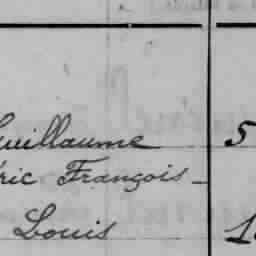 Guillaume 5
éric François
Louis